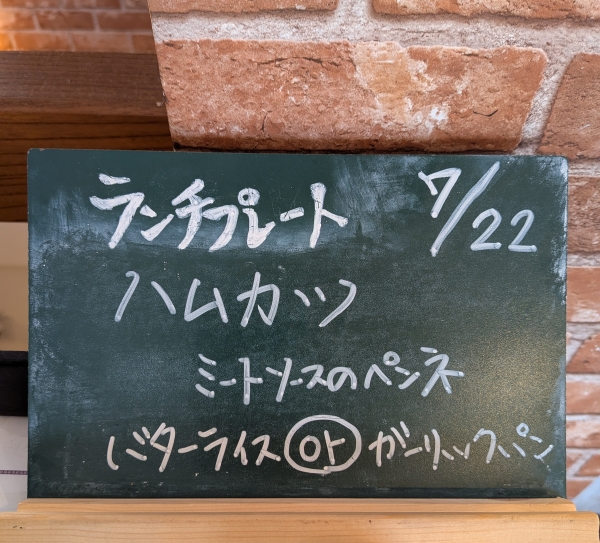 ランチプレート 7/22
ハムカツ
ミートソースのペンネ
バターライス or ガーリックパン